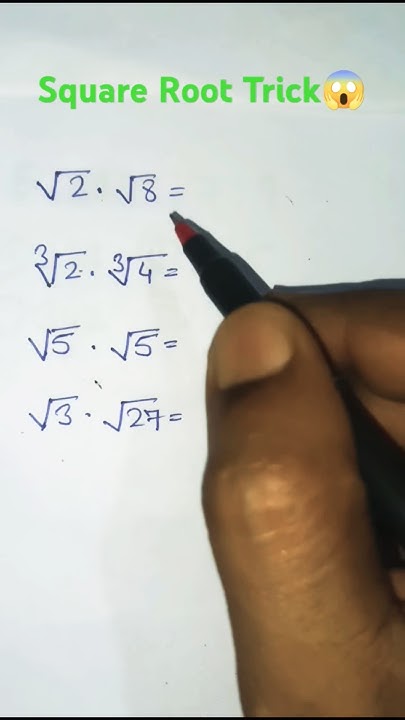 Square Root Trick😱
√2 · √8 =
∛2 · ∛4 =
√5 · √5 =
√3 · √27 =